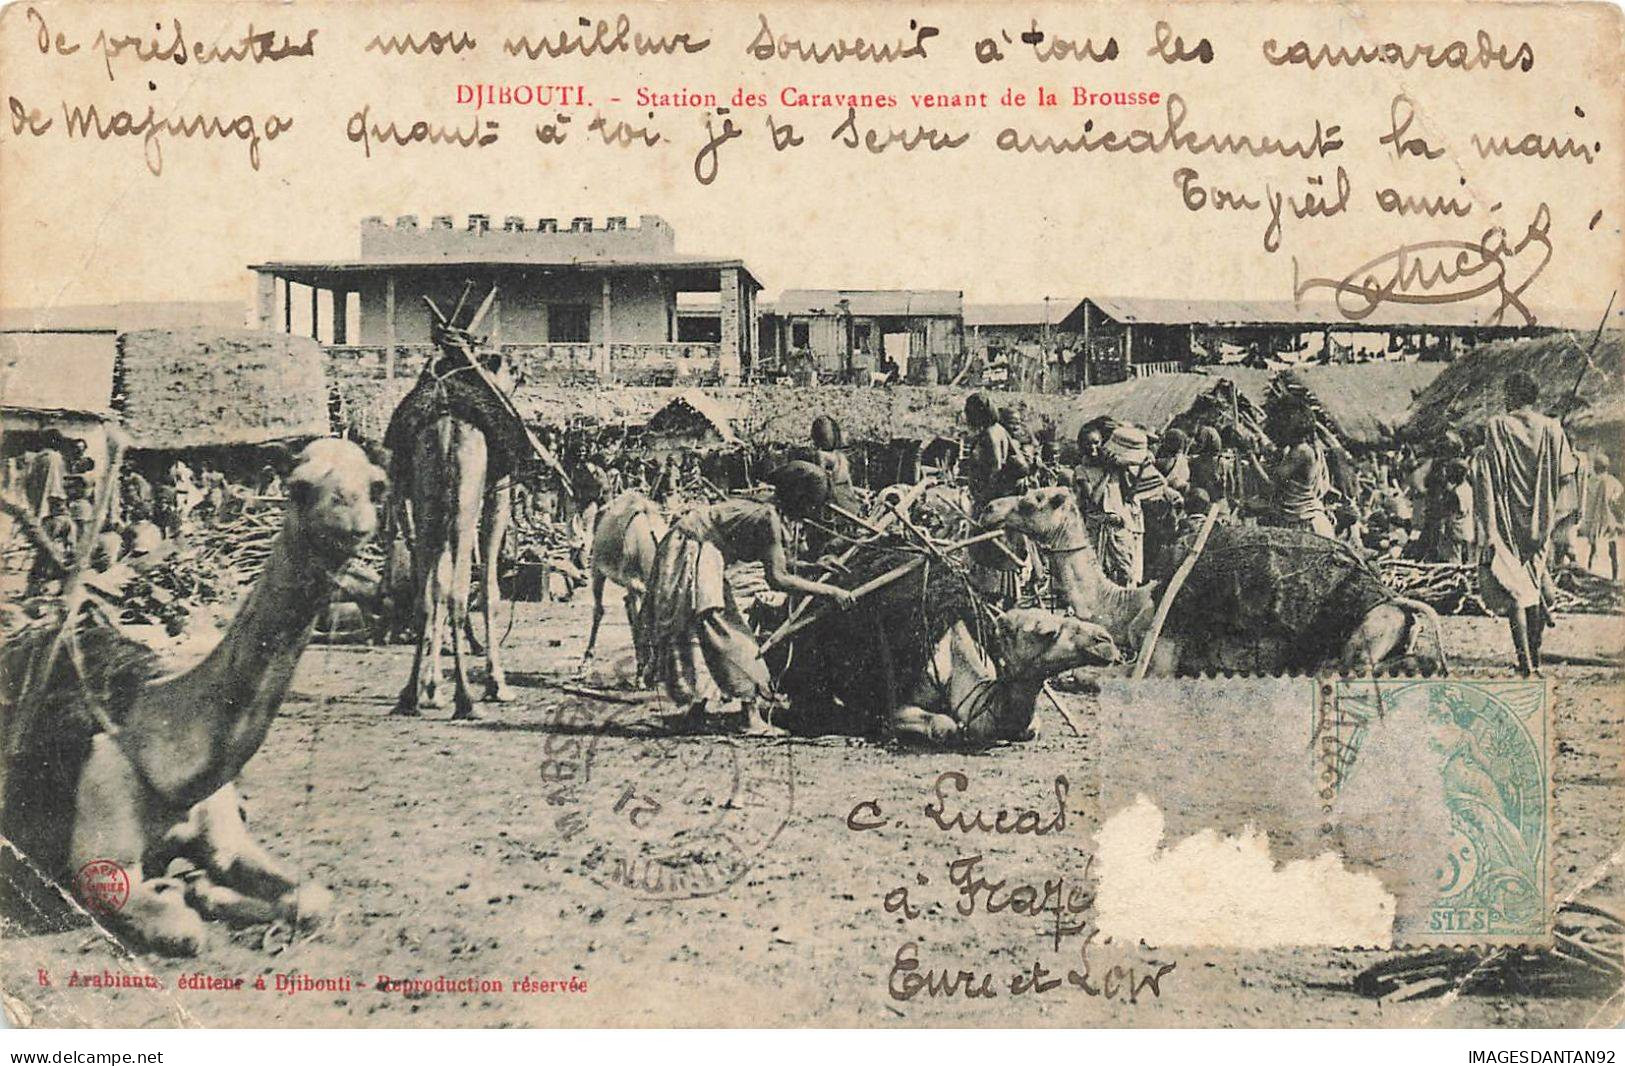 de présenter mon meilleur souvenir à tous les camarades
DJIBOUTI. - Station des Caravanes venant de la Brousse
de Majunga quant à toi je te serre amicalement la main.
Ton vieil ami.
Lucas
C. Lucas
à Frazé
Eure et Loir
STES
K. Arabiantz, éditeur à Djibouti - Reproduction réservée
delcampe.net
IMAGESDANTAN92